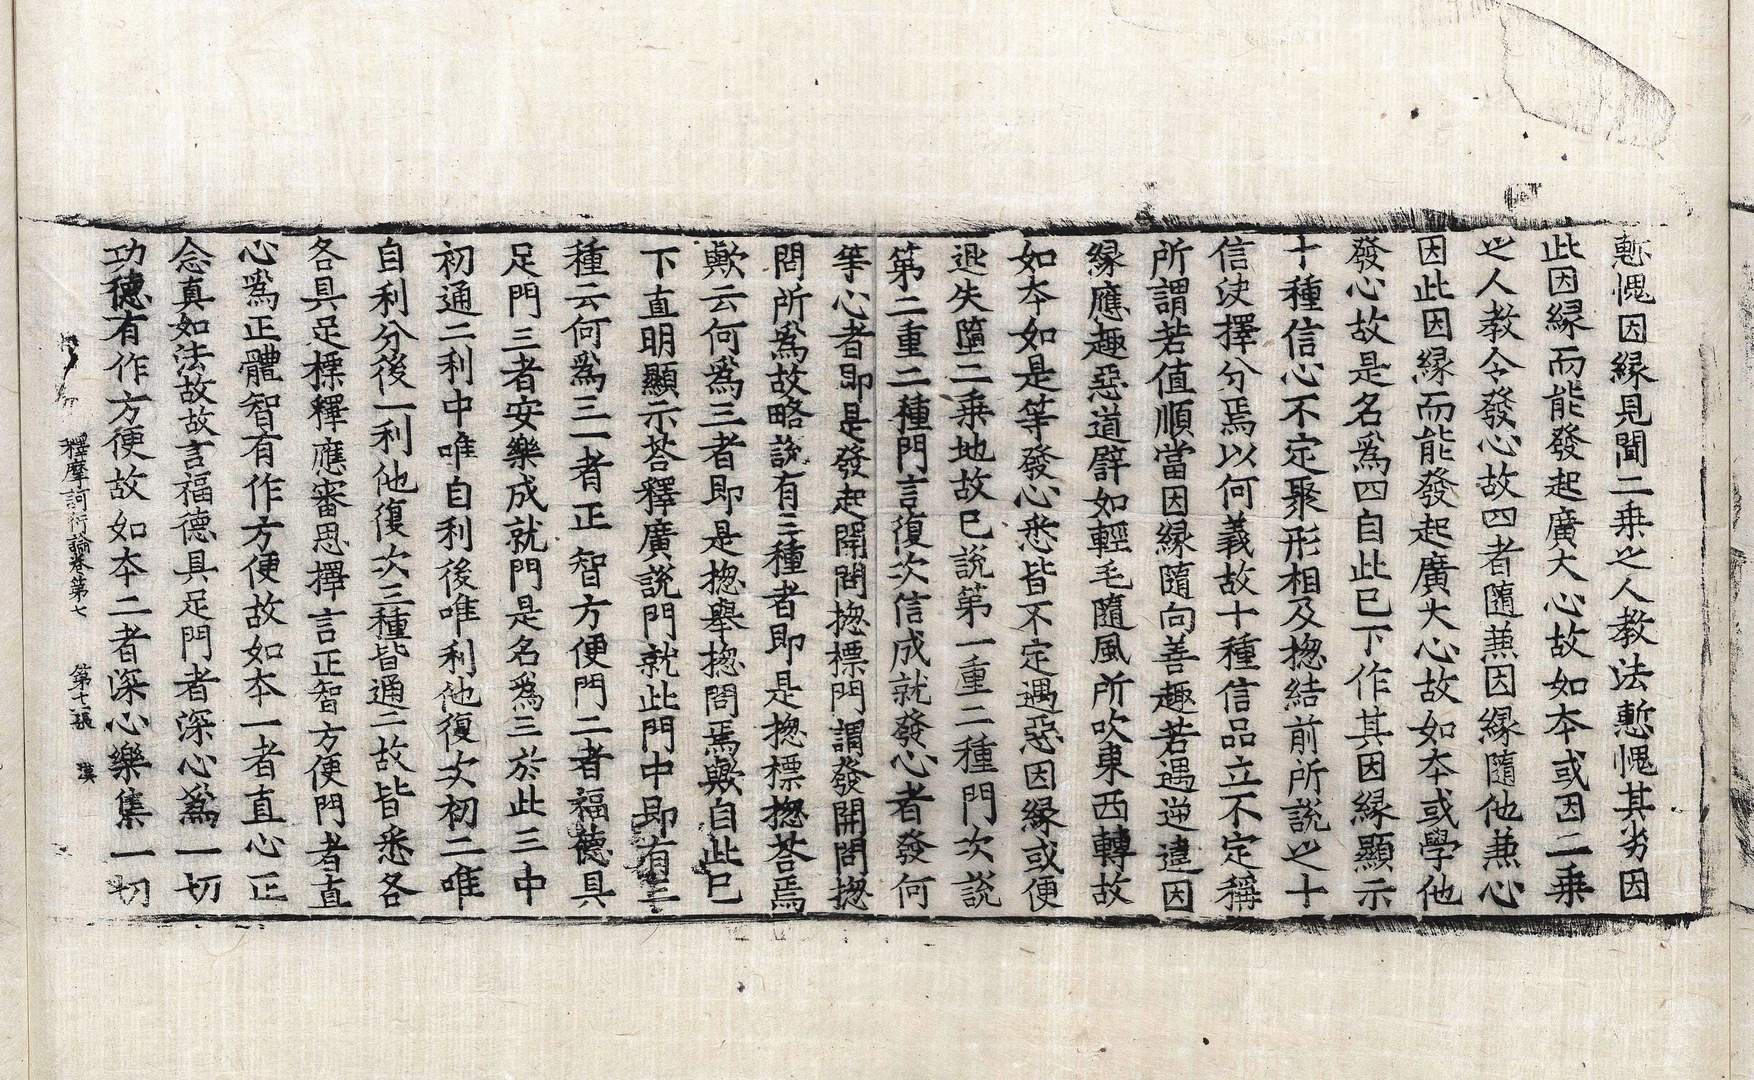 慙愧因縁見聞二乗之人教法慙愧其劣因
此因縁而能發起廣大心故如本或因二乗
之人教令發心故四者隨兼因縁隨他兼心
因此因縁而能發起廣大心故如本或學他
發心故是名爲四自此已下作其因縁顯示
十種信心不定聚形相及揔結前所說之十
信決擇分焉以何義故十種信品立不定稱
所謂若值順當因縁隨向善趣若遇逆違因
縁應趣惡道辟如輕毛隨風所吹東西轉故
如本如是等發心悉皆不定遇惡因縁或便
退失墮二乗地故已說第一重二種門次說
第二重二種門言復次信成就發心者發何
等心者即是發起開問揔標門謂發開問揔
問所爲故略說有三種者即是揔標揔荅焉
歟云何爲三者即是揔舉揔問焉歟自此已
下直明顯示荅釋廣說門就此門中即有三
種云何爲三一者正智方便門二者福德具
足門三者安樂成就門是名爲三於此三中
初通二利中唯自利後唯利他復次初二唯
自利分後一利他復次三種皆通二故皆悉各
各具足標釋應審思擇言正智方便門者直
心爲正體智有作方便故如本一者直心正
念真如法故故言福德具足門者深心爲一切
功德有作方便故如本二者深心樂集一切
釋摩訶衍論卷第七　第十二張　漢